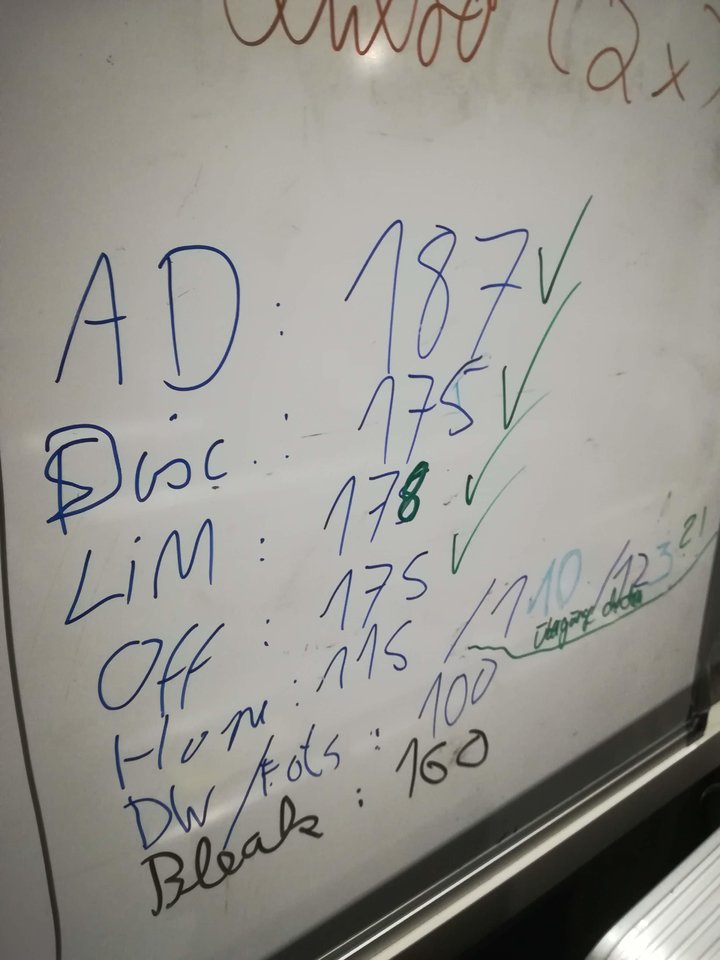 (2x)
AD : 187 ✓
Disc. : 175 ✓
LiM : 178 ✓
Off : 175 ✓
Hom : 115 / 110 / 123 21
DW/Fots : 100
Bleak : 160